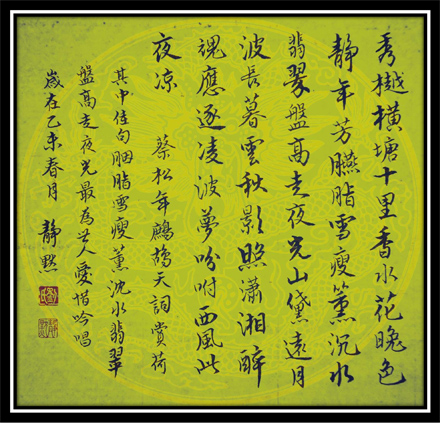 秀樾橫塘十里香水花晚色
静年芳臙脂雪瘦薰沉水
翡翠盤高走夜光山黛遠月
波長暮雲秋影照瀟湘醉
魂應逐凌波夢吩咐西風此
夜涼 蔡松年鷓鴣天詞賞荷
其中佳句胭脂雪瘦薰沈水翡翠
盤高走夜光最為世人愛吟唱
歲在乙未春月 靜默